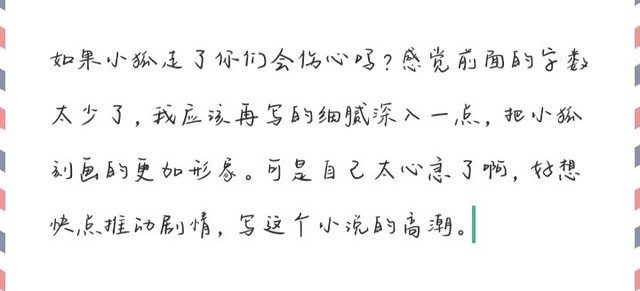 如果小狐走了你们会伤心吗?感觉前面的字数
太少了，我应该再写的细腻深入一点，把小狐
刻画的更加形象。可是自己太心急了啊，好想
快点推动剧情，写这个小说的高潮。